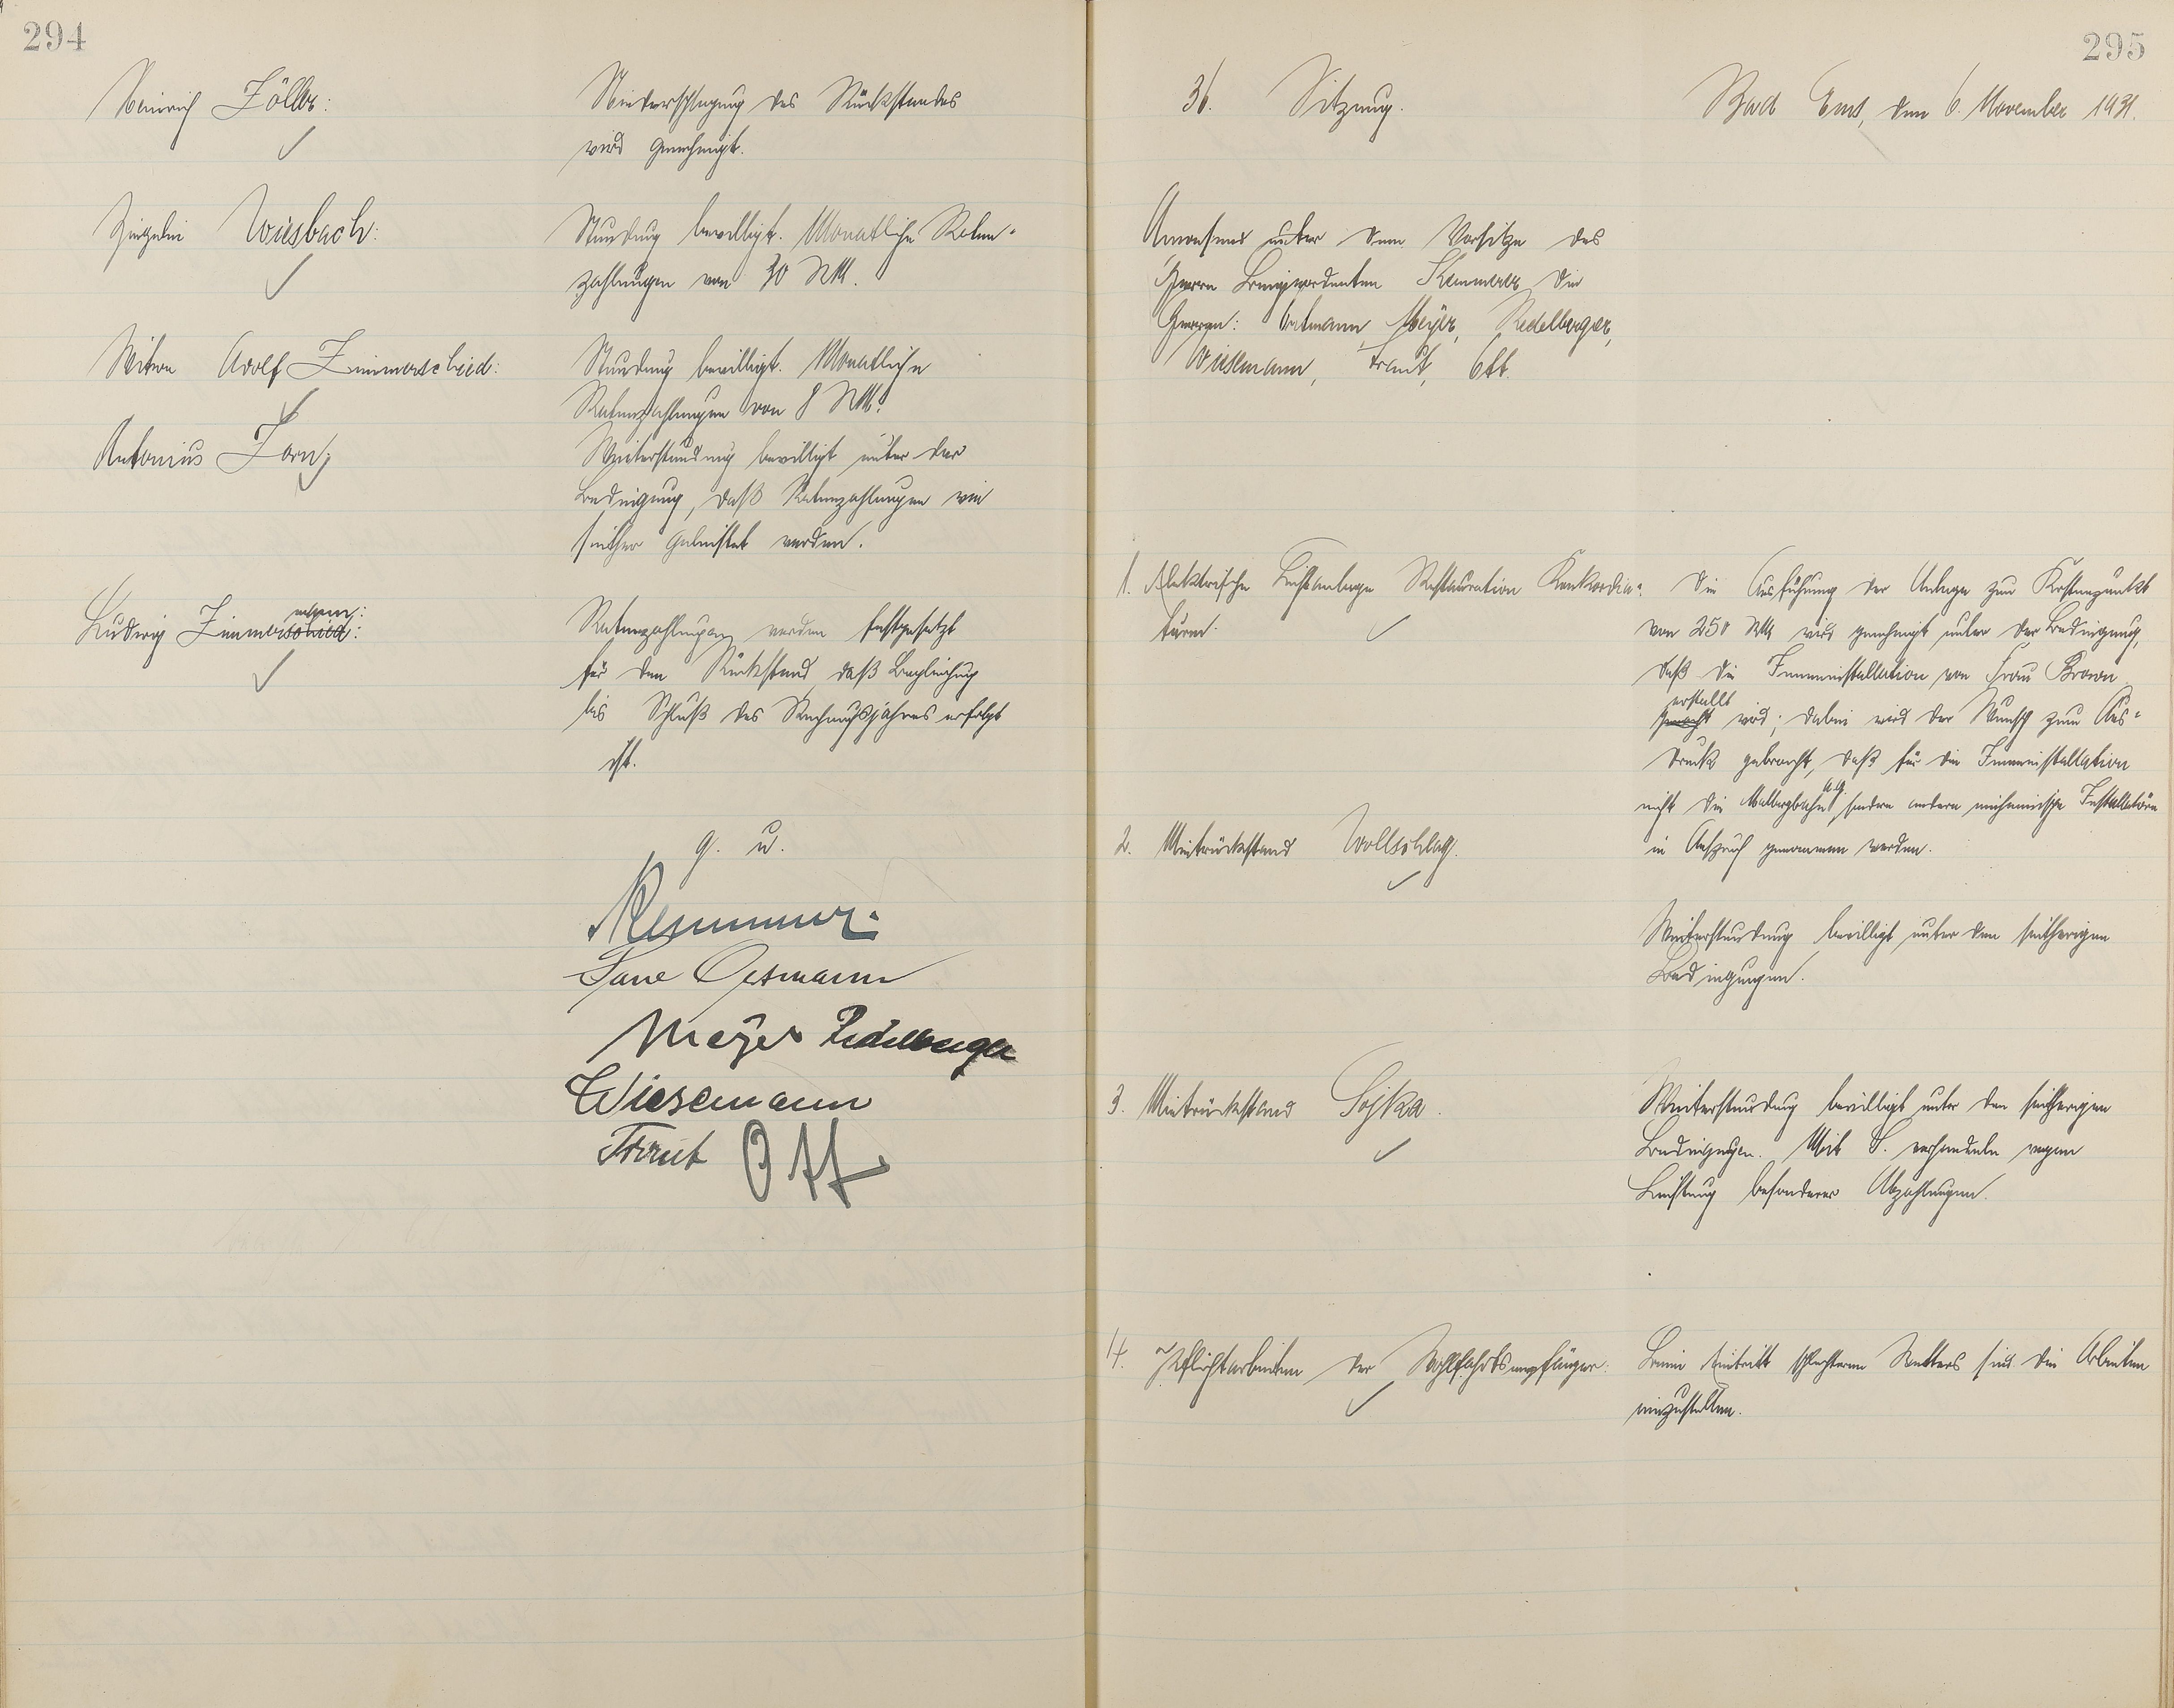 294
Heinrich Zöller:
Niederschlagung des Rückstandes
wird genehmigt.
Ziegelei Wiesbach:
Stundung bewilligt. Monatliche Raten-
zahlungen von 30 RM.
Witwe Adolf Zimmerschied:
Stundung bewilligt. Monatliche
Ratenzahlungen von 8 RM.
Antonius Zorn:
Weiterstundung bewilligt unter der
Bedingung, daß Ratenzahlungen wie
seither geleistet werden.
Ludwig Zimmerschied:
Ratenzahlungen werden festgesetzt
für den Rückstand, daß Begleichung
bis Schluß des Rechnungsjahres erfolgt
ist.
g. u.
Kemmerer
Oesmann
Meyer Redelberger
Wiesemann
Traut Ott
295
36. Sitzung.
Bad Ems, den 6. November 1931.
Anwesend unter dem Vorsitze des
Herrn Beigeordneten Kemmerer die
Herren: Meyer, Redelberger,
Wiesemann, Traut, Ott.
1. Elektrische Lichtanlage Restauration Konkordia-
turm.
Die Ausführung der Anlage zum Kostenpunkt
von 250 RM wird genehmigt unter der Bedingung,
daß die Inneninstallation von Frau Brown
erstellt
gemacht wird; dabei wird der Wunsch zum Aus-
druck gebracht, daß für die Inneninstallation
nicht die Malbergbahn A.G. sondern andere einheimische Installatöre
in Anspruch genommen werden.
2. Mietrückstand Wollschlag.
Weiterstundung bewilligt unter den seitherigen
Bedingungen.
3. Mietrückstand Sojka.
Weiterstundung bewilligt unter den seitherigen
Bedingungen. Mit S. verhandeln wegen
Leistung besonderer Abzahlungen.
4. Pflichtarbeiten der Wohlfahrtsempfänger:
Beim Eintritt schlechteren Wetters sind die Arbeiten
einzustellen.